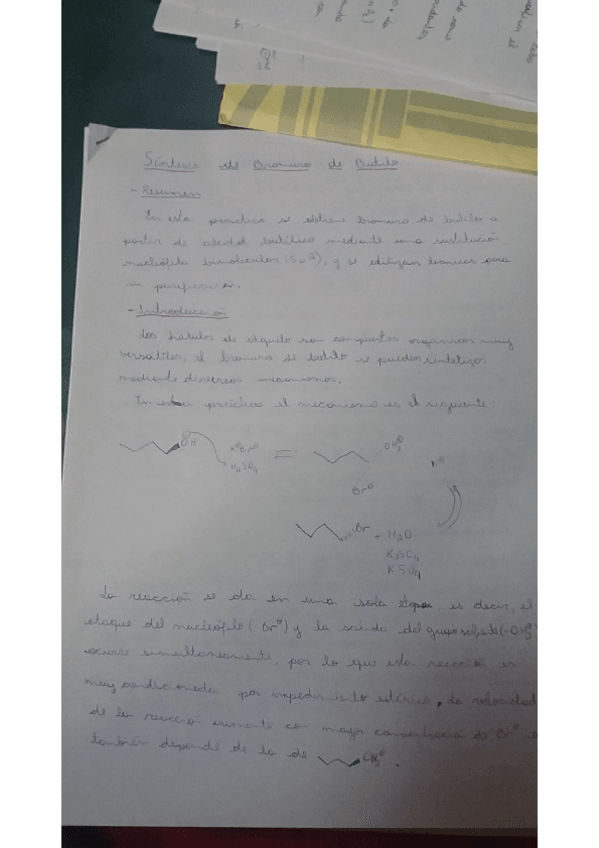 Síntesis de Bromuro de Butilo
- Resumen
En esta práctica se obtiene bromuro de butilo a
partir de alcohol butílico mediante una sustitución
nucleófila bimolecular (SN2), y se utilizan técnicas para
su purificación.
- Introducción
Los haluros de alquilo son compuestos orgánicos muy
versátiles, el bromuro de butilo se puede sintetizar
mediante diversos mecanismos.
En esta práctica el mecanismo es el siguiente:
OH K⊕Br⊖ = OH2⊕
H2SO4 K⊕
Br⊖
Br + H2O
K2SO4
KSO4
La reacción se da en una sola etapa, es decir, el
ataque del nucleófilo (-Br⊖) y la salida del grupo
ocurre simultaneamente, por lo que esta reacción es
muy condicionada por impedimento estérico, la velocidad
de la reacción aumenta con mayor concentración de Br⊖
también depende de la de OH2⊕.